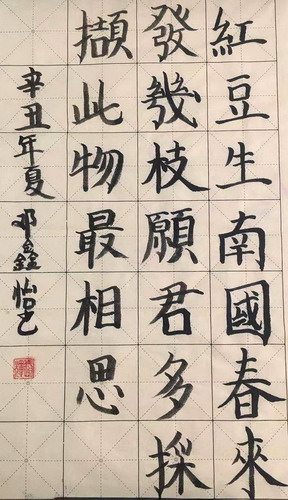 紅豆生南國春來
發幾枝願君多採
擷此物最相思
辛丑年夏 邓鑫怡书